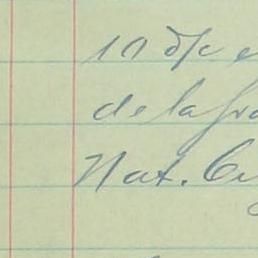 10 d/c e
de la fra
Nat. Cu